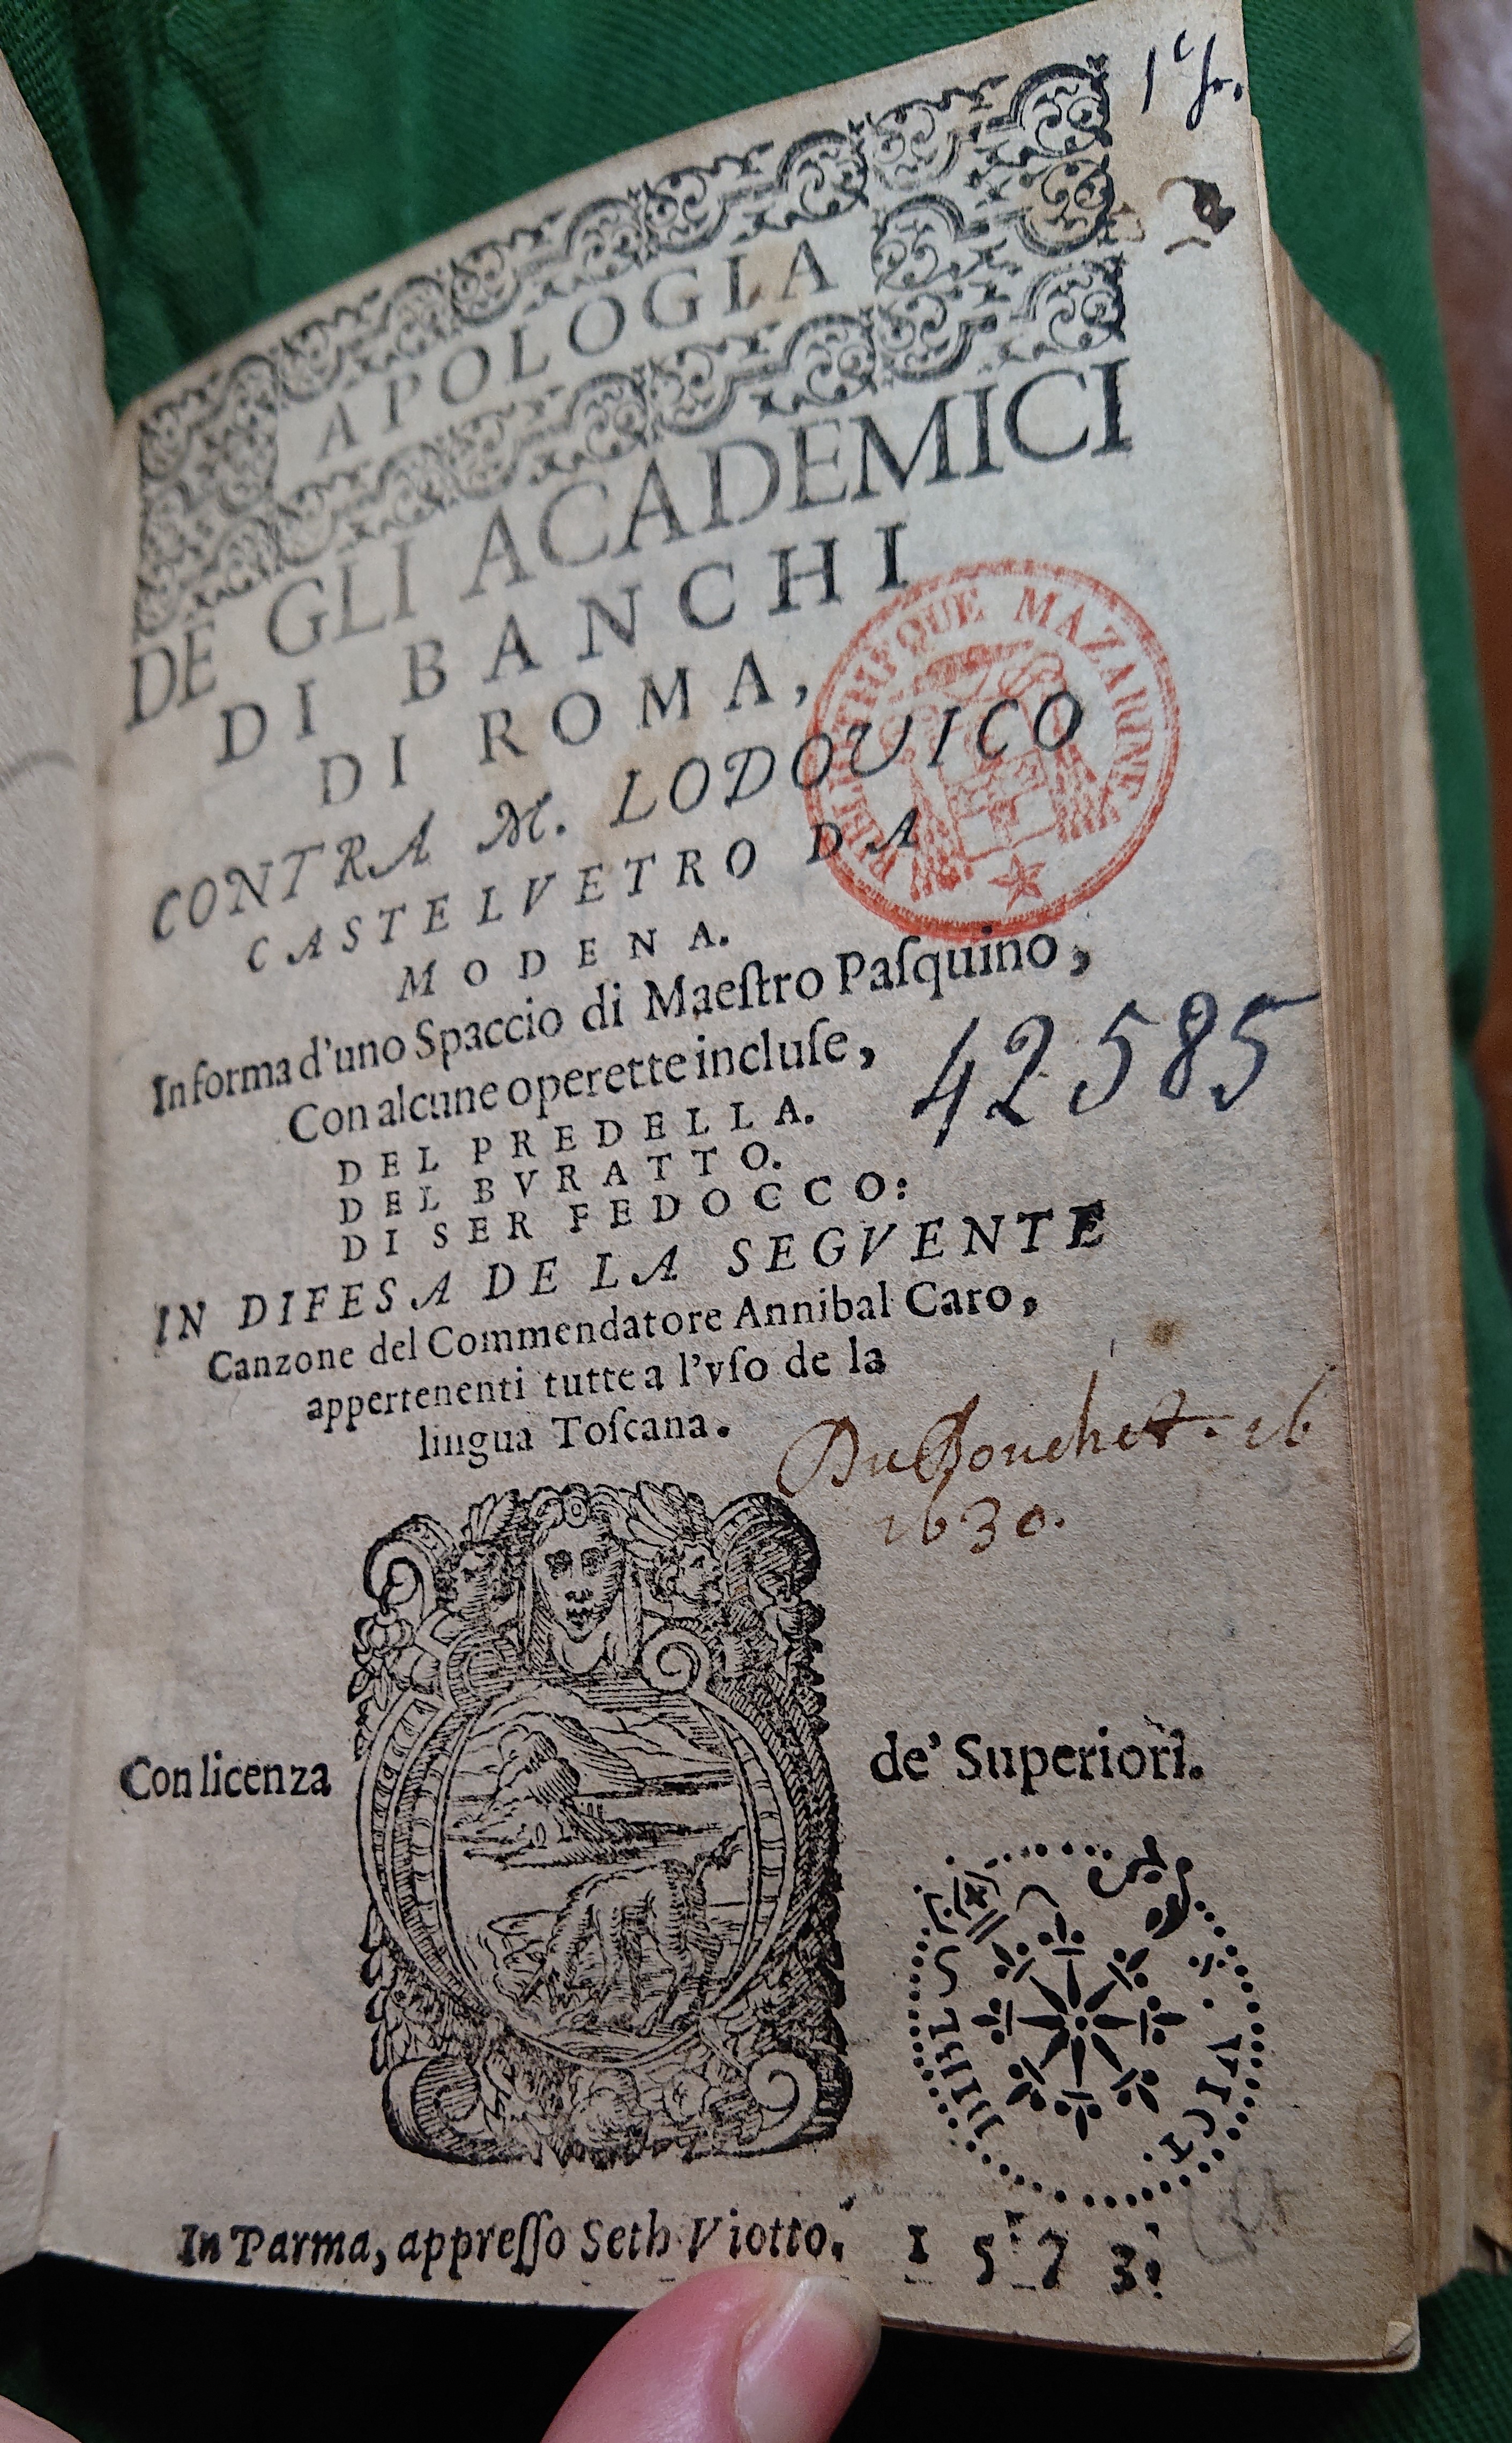 APOLOGIA
DE GLI ACADEMICI
DI BANCHI
DI ROMA,
BIBLIOTHEQUE MAZARINE
CONTRA M. LODOUICO
CASTELVETRO DA
MODENA.
In forma d'uno Spaccio di Maeſtro Paſquino,
Con alcune operette incluſe,
42585
DEL PREDELLA.
DEL BVRATTO.
DI SER FEDOCCO:
IN DIFESA DE LA SEGVENTE
Canzone del Commendatore Annibal Caro,
appertenenti tutte a l'vſo de la
lingua Toſcana.
Du Bouchet. 16
1630.
Con licenza de' Superiori.
In Parma, appreſſo Seth Viotto. 1573.